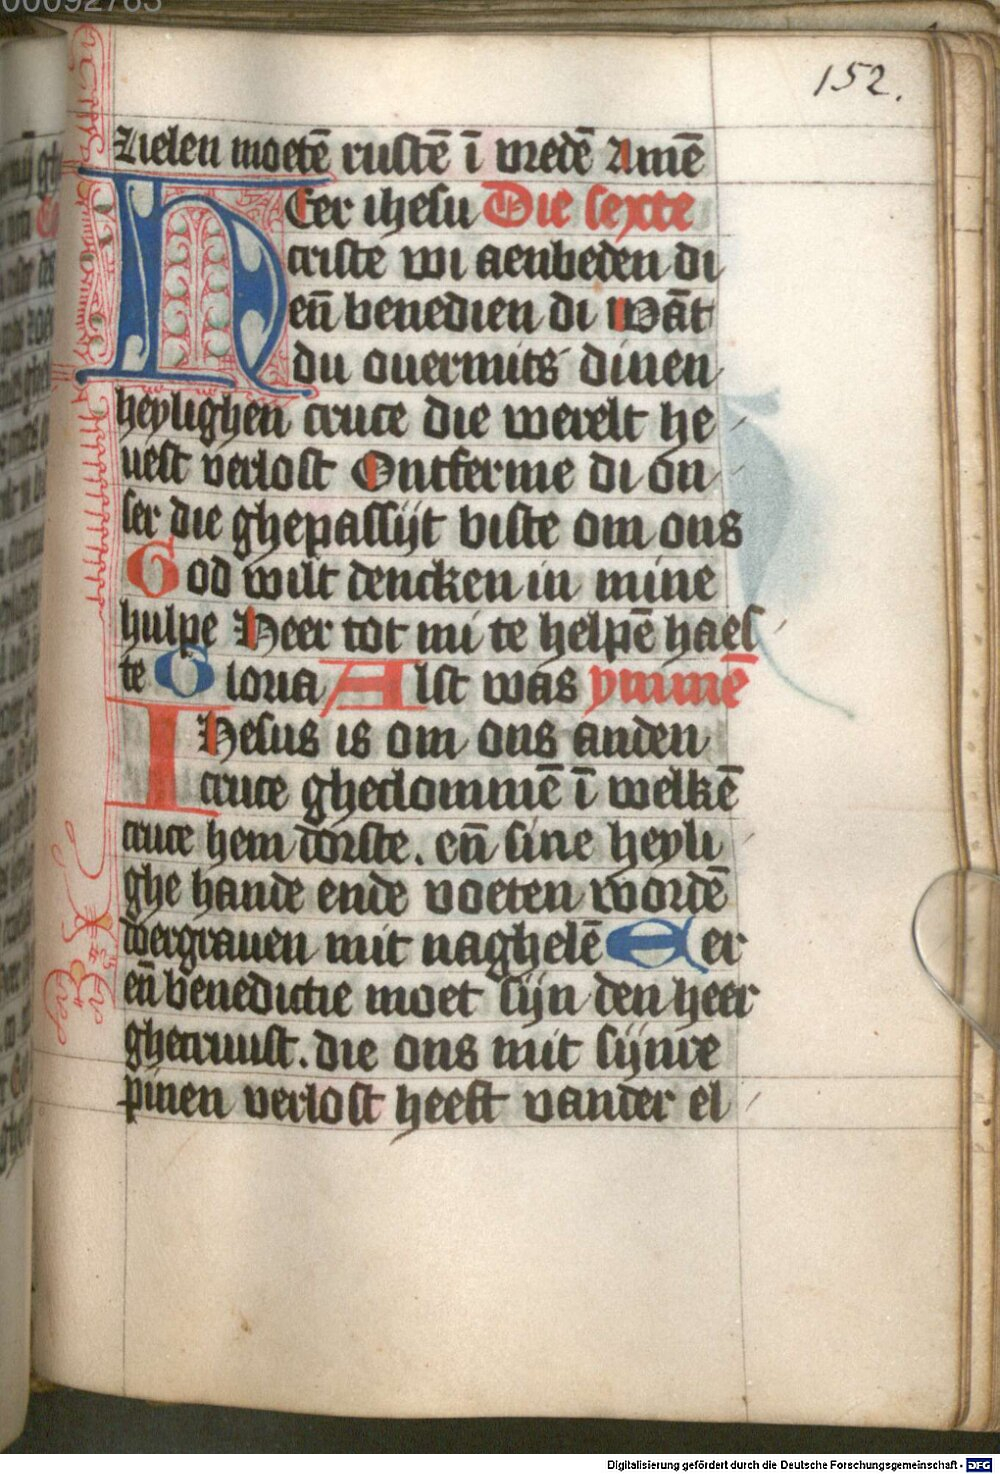 00092763
152.
zielen moetē rustē ī vredē Amē
Heer ihesu Die sexte
criste wi aenbeden di
eñ benedien di Wāt
du ouermits dinen
heylighen cruce die werelt he
uest verlost Ontferme di on
ser die ghepassijt biste om ons
God wilt dencken in mine
hulpe Heer tot mi te helpē haes
te Gloria Alst was ymmē
IHesus is om ons anden
cruce gheclommē ī welkē
cruce hem dorste. eñ sine heyli
ghe hande ende voeten wordē
doergrauen mit naghelē Eer
eñ benedictie moet sijn den heer
ghecruust. die ons mit sijnre
pinen verlost heeft vander el
Digitalisierung gefördert durch die Deutsche Forschungsgemeinschaft - DFG